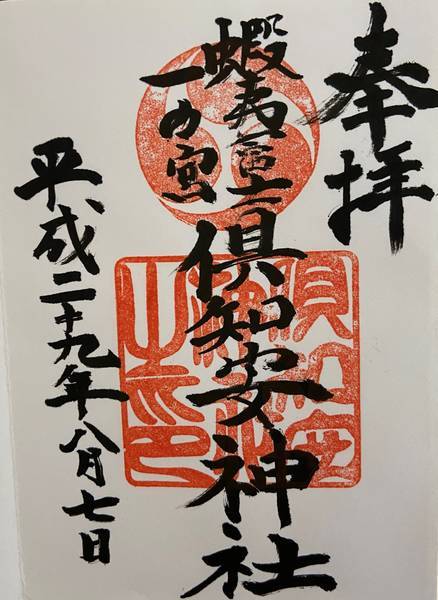 奉拝
蝦夷富士
一の宮
倶知安神社
平成二十九年八月七日